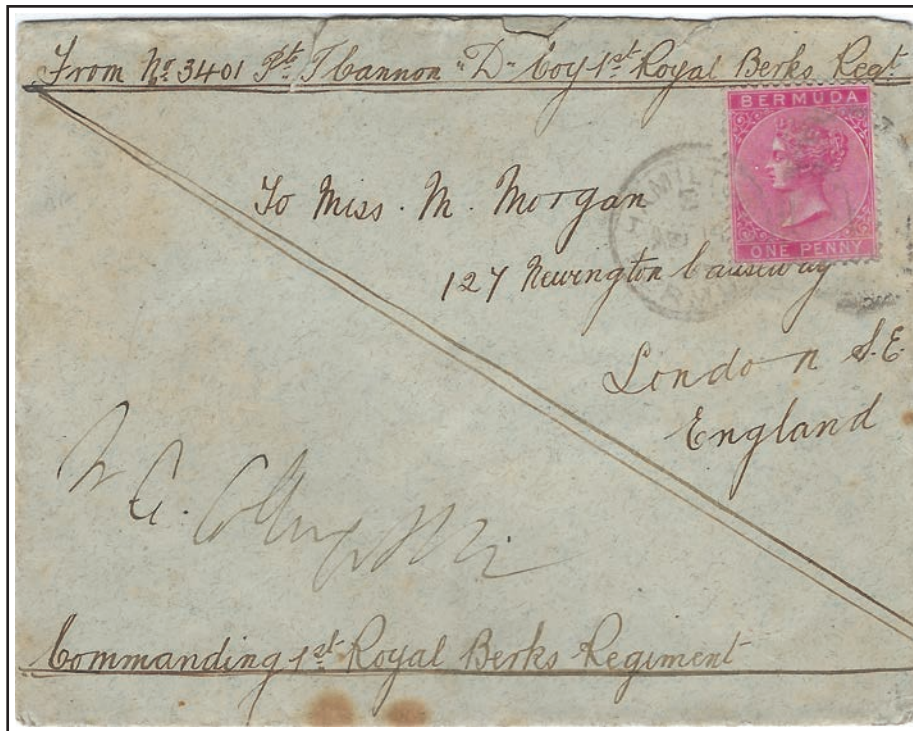 From No. 3401 Pt. T Cannon "D" Coy 1st Royal Berks Regt.
BERMUDA
ONE PENNY
To Miss. M. Morgan
127 Newington Causeway
London S.E.
England
Commanding 1st Royal Berks Regiment